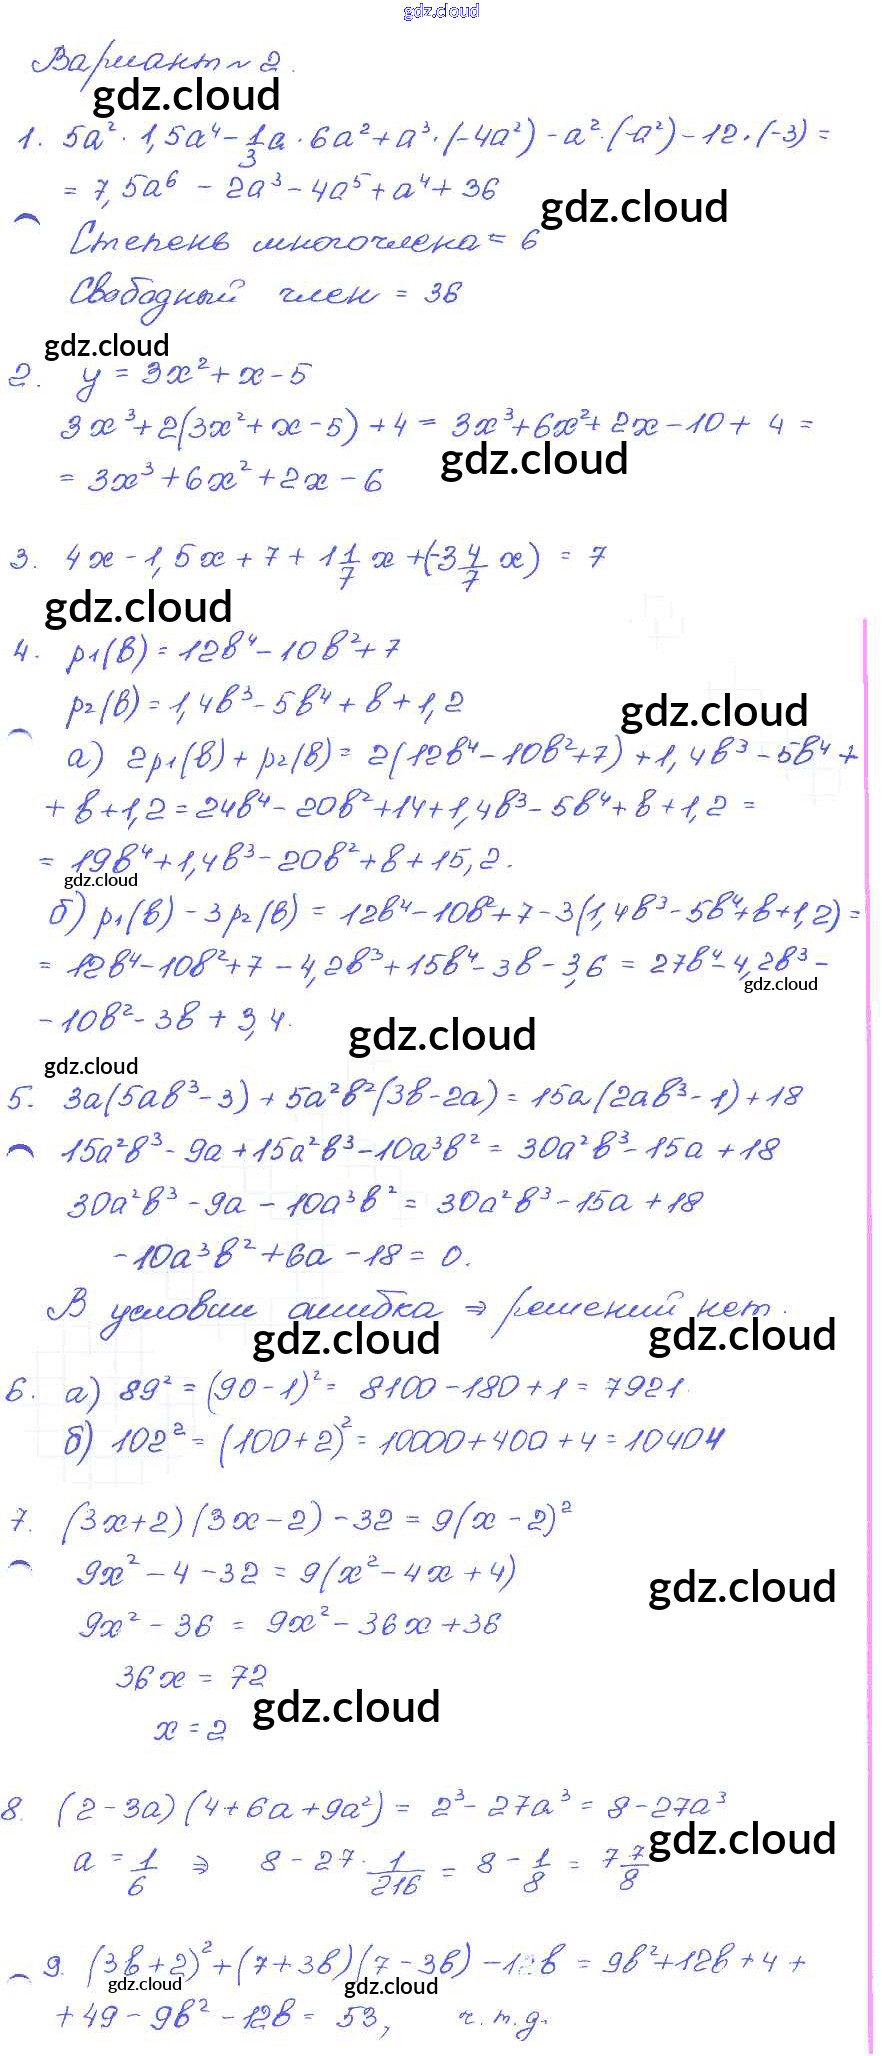 gdz.cloud
Вариант № 2.
gdz.cloud
1. 5a²·1,5a⁴ - 1/3 a·6a² + a³·(-4a²) - a²·(-a²) - 12·(-3) =
= 7,5a⁶ - 2a³ - 4a⁵ + a⁴ + 36
gdz.cloud
Степень многочлена = 6
Свободный член = 36
gdz.cloud
2. y = 3x² + x - 5
3x³ + 2(3x² + x - 5) + 4 = 3x³ + 6x² + 2x - 10 + 4 =
gdz.cloud
= 3x³ + 6x² + 2x - 6
3. 4x - 1,5x + 7 + 1 1/7 x + (-3 4/7 x) = 7
gdz.cloud
4. p₁(b) = 12b⁴ - 10b² + 7
p₂(b) = 1,4b³ - 5b⁴ + b + 1,2
gdz.cloud
а) 2p₁(b) + p₂(b) = 2(12b⁴ - 10b² + 7) + 1,4b³ - 5b⁴ +
+ b + 1,2 = 24b⁴ - 20b² + 14 + 1,4b³ - 5b⁴ + b + 1,2 =
= 19b⁴ + 1,4b³ - 20b² + b + 15,2.
gdz.cloud
б) p₁(b) - 3p₂(b) = 12b⁴ - 10b² + 7 - 3(1,4b³ - 5b⁴ + b + 1,2) =
= 12b⁴ - 10b² + 7 - 4,2b³ + 15b⁴ - 3b - 3,6 = 27b⁴ - 4,2b³ -
gdz.cloud
- 10b² - 3b + 3,4.
gdz.cloud
gdz.cloud
5. 3a(5ab³ - 3) + 5a²b²(3b - 2a) = 15a(2ab³ - 1) + 18
15a²b³ - 9a + 15a²b³ - 10a³b² = 30a²b³ - 15a + 18
30a²b³ - 9a - 10a³b² = 30a²b³ - 15a + 18
- 10a³b² + 6a - 18 = 0.
В условии ошибка ⇒ решений нет.
gdz.cloud gdz.cloud
6. а) 89² = (90 - 1)² = 8100 - 180 + 1 = 7921.
б) 102² = (100 + 2)² = 10000 + 400 + 4 = 10404
7. (3x + 2)(3x - 2) - 32 = 9(x - 2)²
9x² - 4 - 32 = 9(x² - 4x + 4)
gdz.cloud
9x² - 36 = 9x² - 36x + 36
36x = 72
gdz.cloud
x = 2
8. (2 - 3a)(4 + 6a + 9a²) = 2³ - 27a³ = 8 - 27a³
gdz.cloud
a = 1/6 ⇒ 8 - 27·1/216 = 8 - 1/8 = 7 7/8
9. (3b + 2)² + (7 + 3b)(7 - 3b) - 12b = 9b² + 12b + 4 +
gdz.cloud gdz.cloud
+ 49 - 9b² - 12b = 53, ч.т.д.